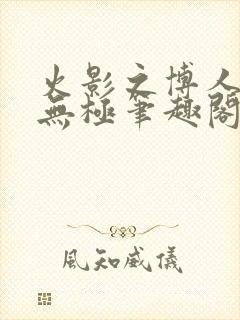 火影之博人
無極筆趣閣
風知威儀